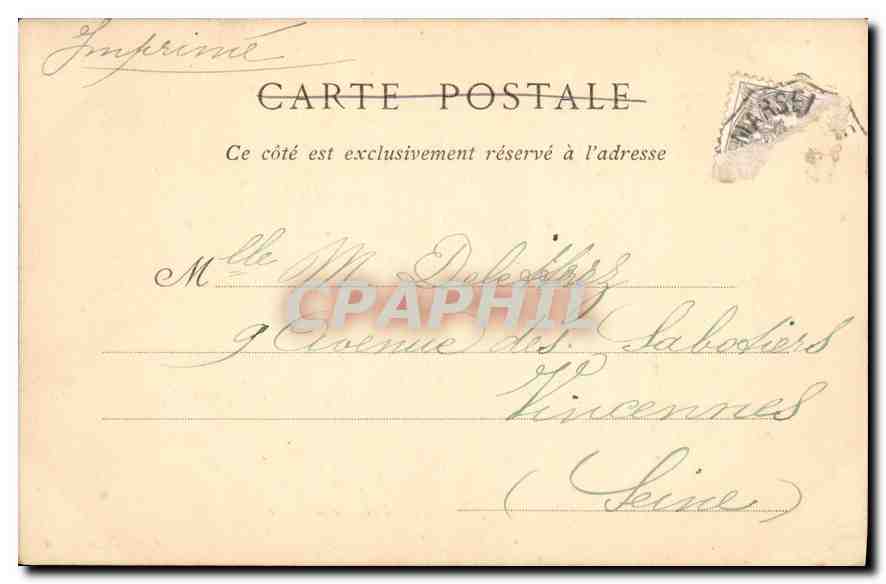 Imprimé
CARTE POSTALE
MARSEI
Ce côté est exclusivement réservé à l'adresse
Mlle M.
CPAPHIL
9 Avenue des Sabotiers
Vincennes
(Seine)